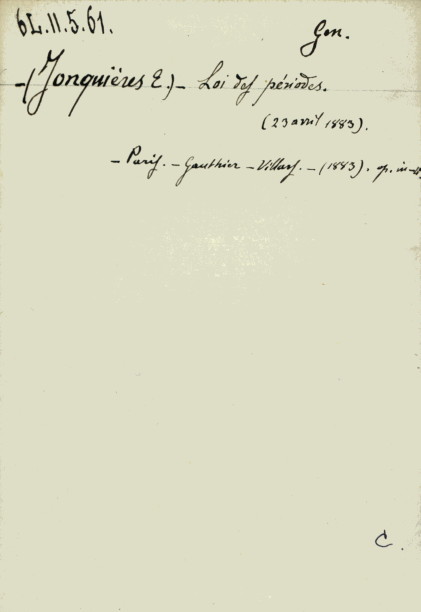 6L.II.5.61.
Gen.
-(Jonquières E.)- Loi des périodes.
(23 avril 1883).
- Paris. - Gauthier - Villars. - (1883). op. in-
C.